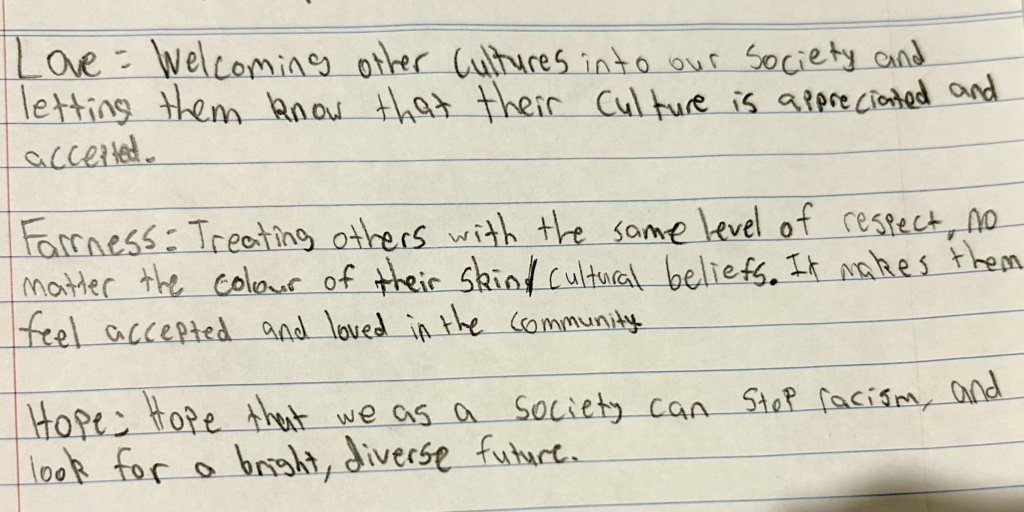 Love = Welcoming other Cultures into our Society and
letting them know that their Culture is appreciated and
accepted.
Fairness = Treating others with the same level of respect, no
matter the colour of their skin/ cultural beliefs. It makes them
feel accepted and loved in the community.
Hope = Hope that we as a society can stop racism, and
look for a bright, diverse future.